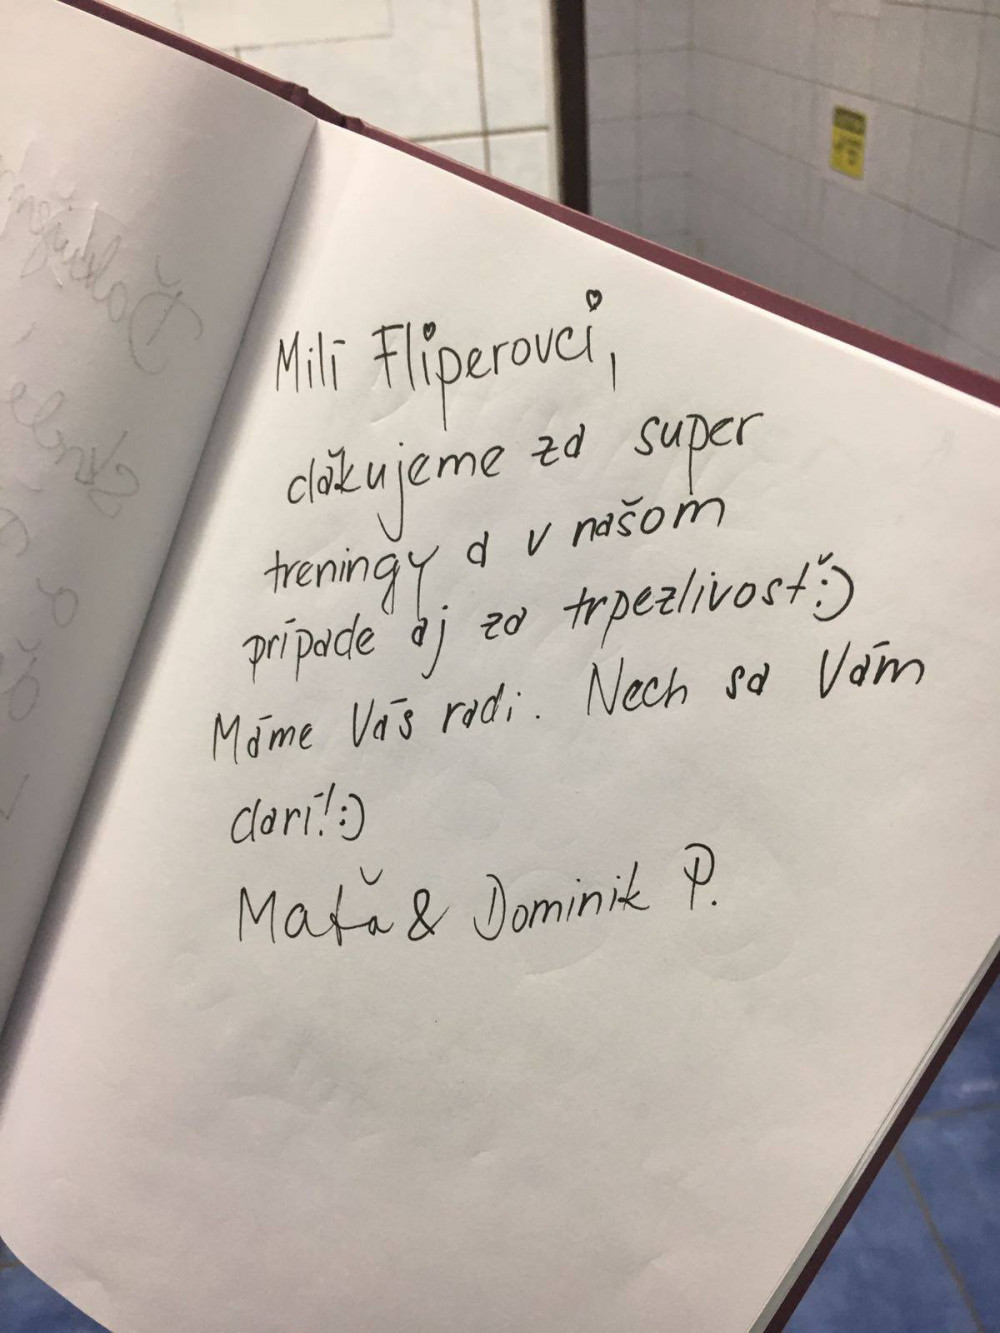 Milí Fliperovci,
ďakujeme za super
treningy a v našom
prípade aj za trpezlivosť :)
Máme Vás radi. Nech sa Vám
darí! :)
Maťa & Dominik P.